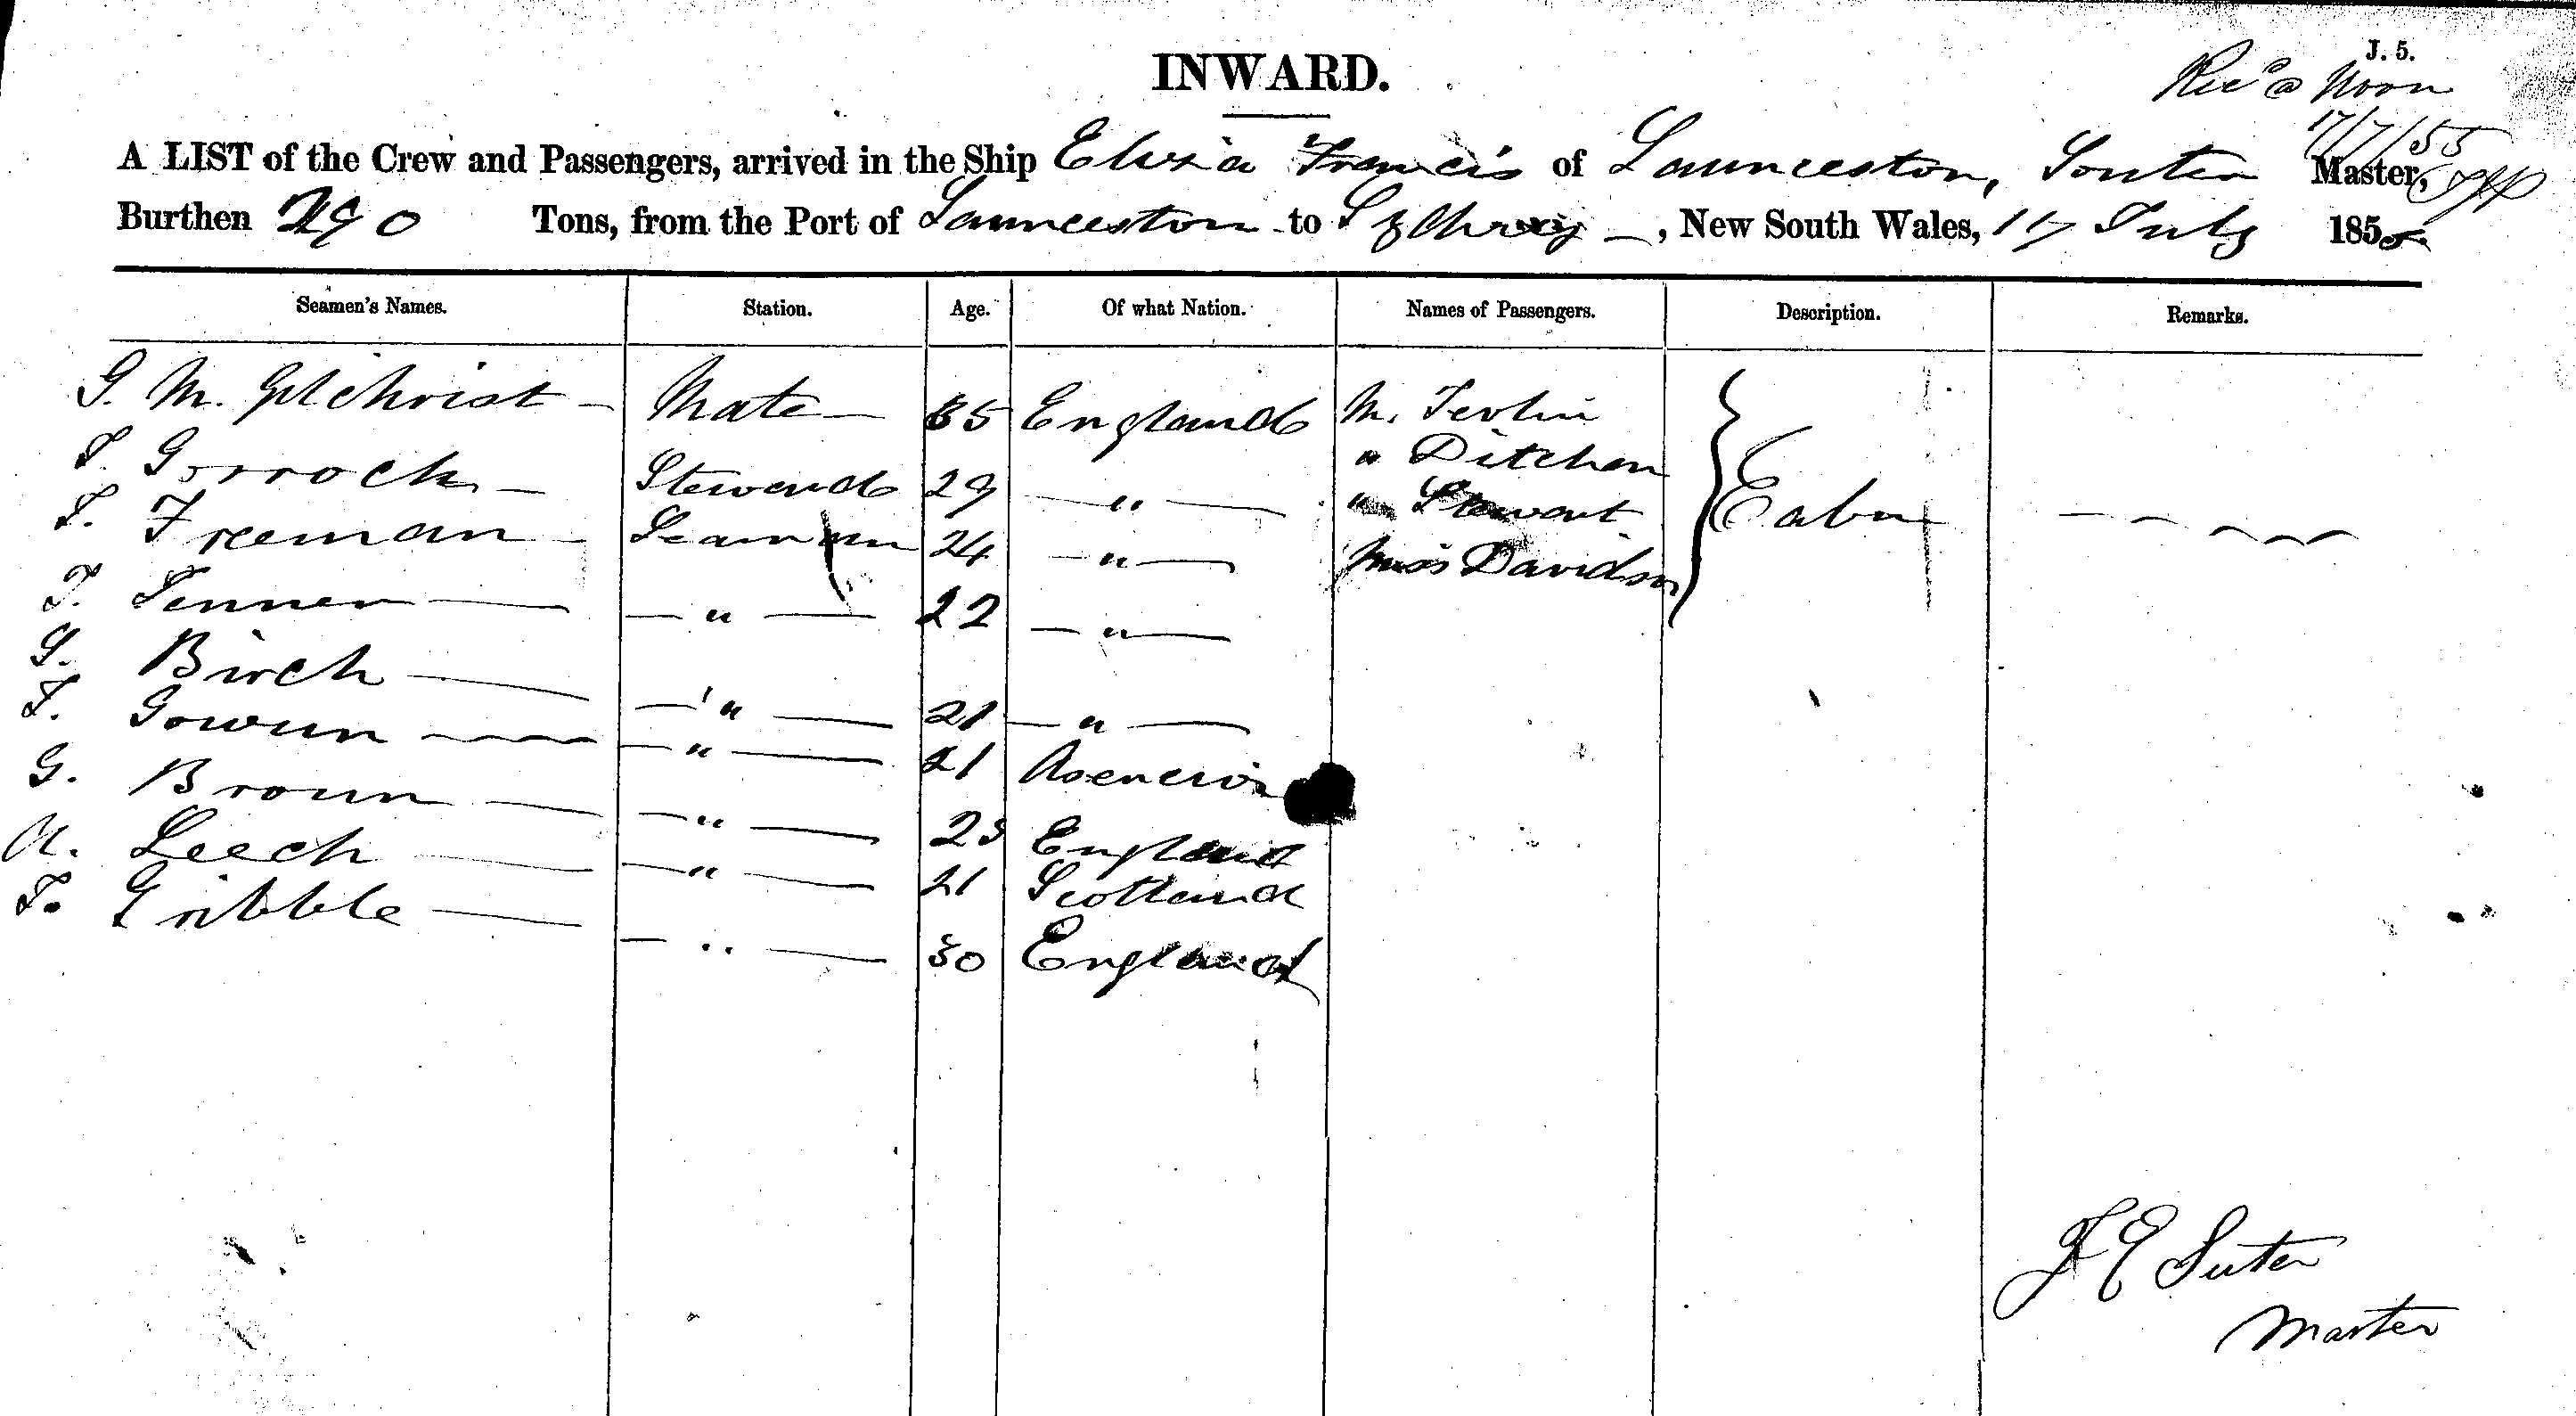 INWARD.
J. 5.
Rec'd @ Noon
17/7/55
A LIST of the Crew and Passengers, arrived in the Ship Eliza Francis of Launceston, Souter Master,
Burthen 290 Tons, from the Port of Launceston to Sydney, New South Wales, 17 July 1855.
Seamen's Names. Station. Age. Of what Nation. Names of Passengers. Description. Remarks.
G. M. Gilchrist Mate 35 England M.
J. Gorrock Steward 29 " " Ditcham
J. Freeman Seaman 24 " " Stewart
T. Tenner " 22 " Miss Davidson
Cabin
G. Birch " 21 "
J. Gowun " 21
G. Broun " 23 England
A. Leech " 21 Scotland
J. Gribble " 30 England
J E Suter
Master